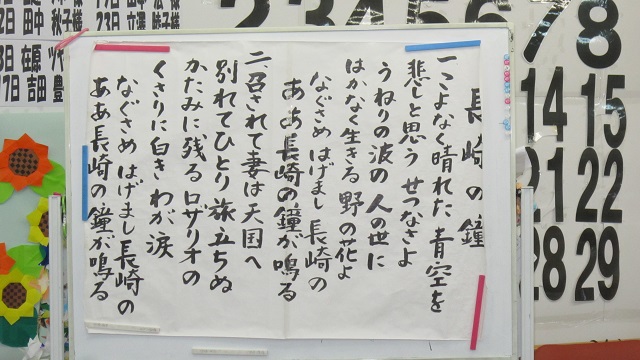 長崎の鐘
一こよなく晴れた青空を
悲しと思うせつなさよ
うねりの波の人の世に
はかなく生きる野の花よ
なぐさめはげまし長崎の
ああ長崎の鐘が鳴る
二.召されて妻は天国へ
別れてひとり旅立ちぬ
かたみに残るロザリオの
くさりに白きわが涙
なぐさめはげまし長崎の
ああ長崎の鐘が鳴る
7 8
14 15
21 22
28 29